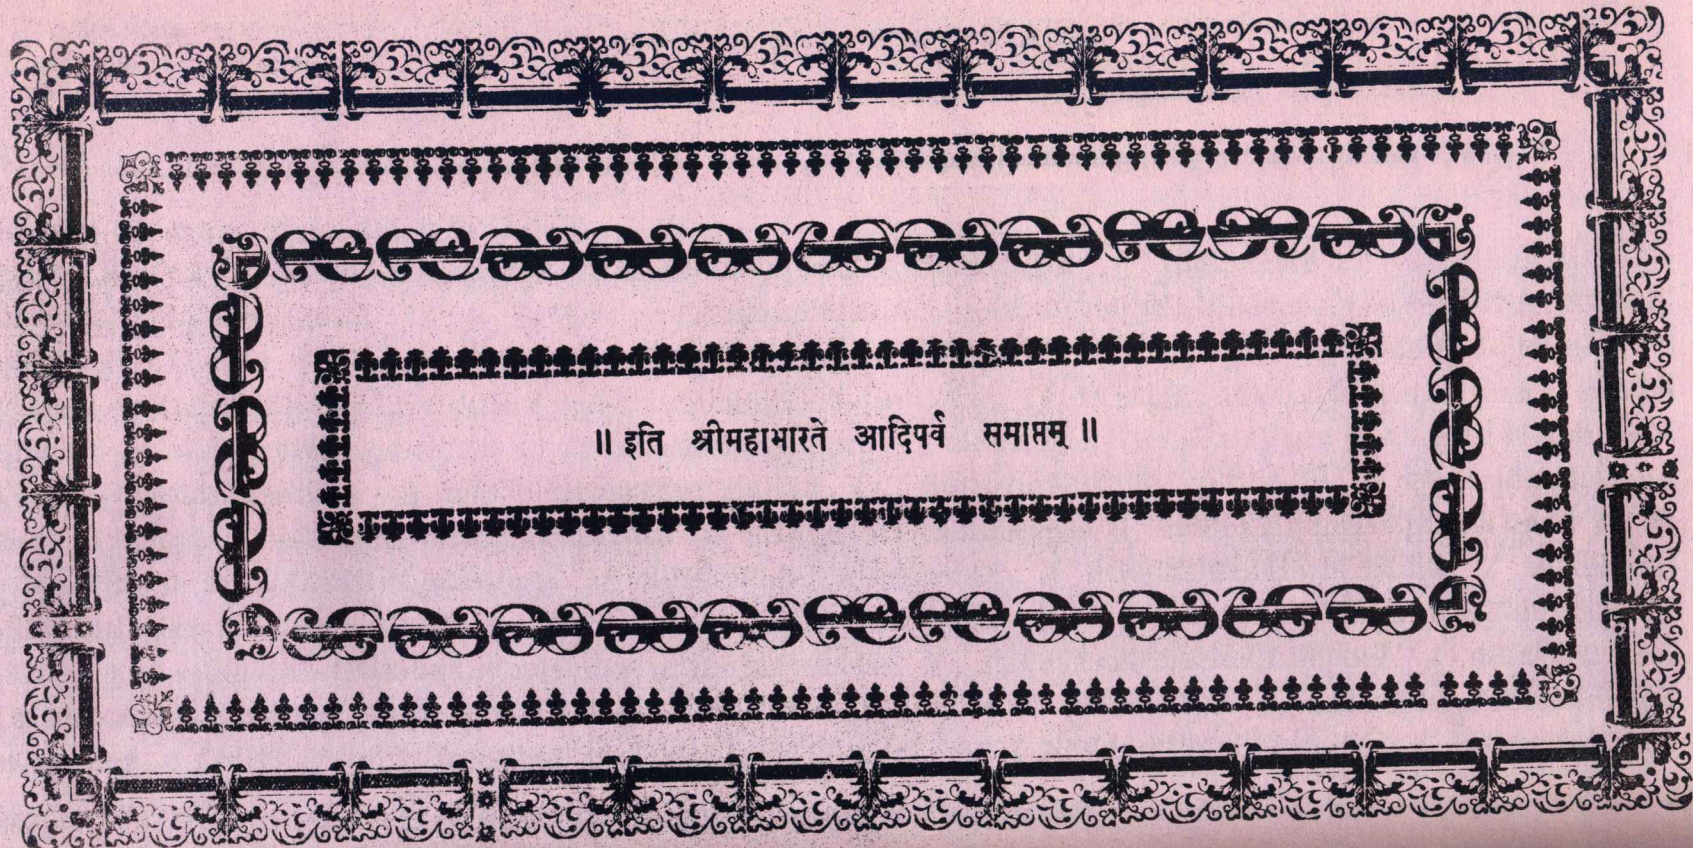 ॥ इति श्रीमहाभारते आदिपर्व समाप्तम् ॥